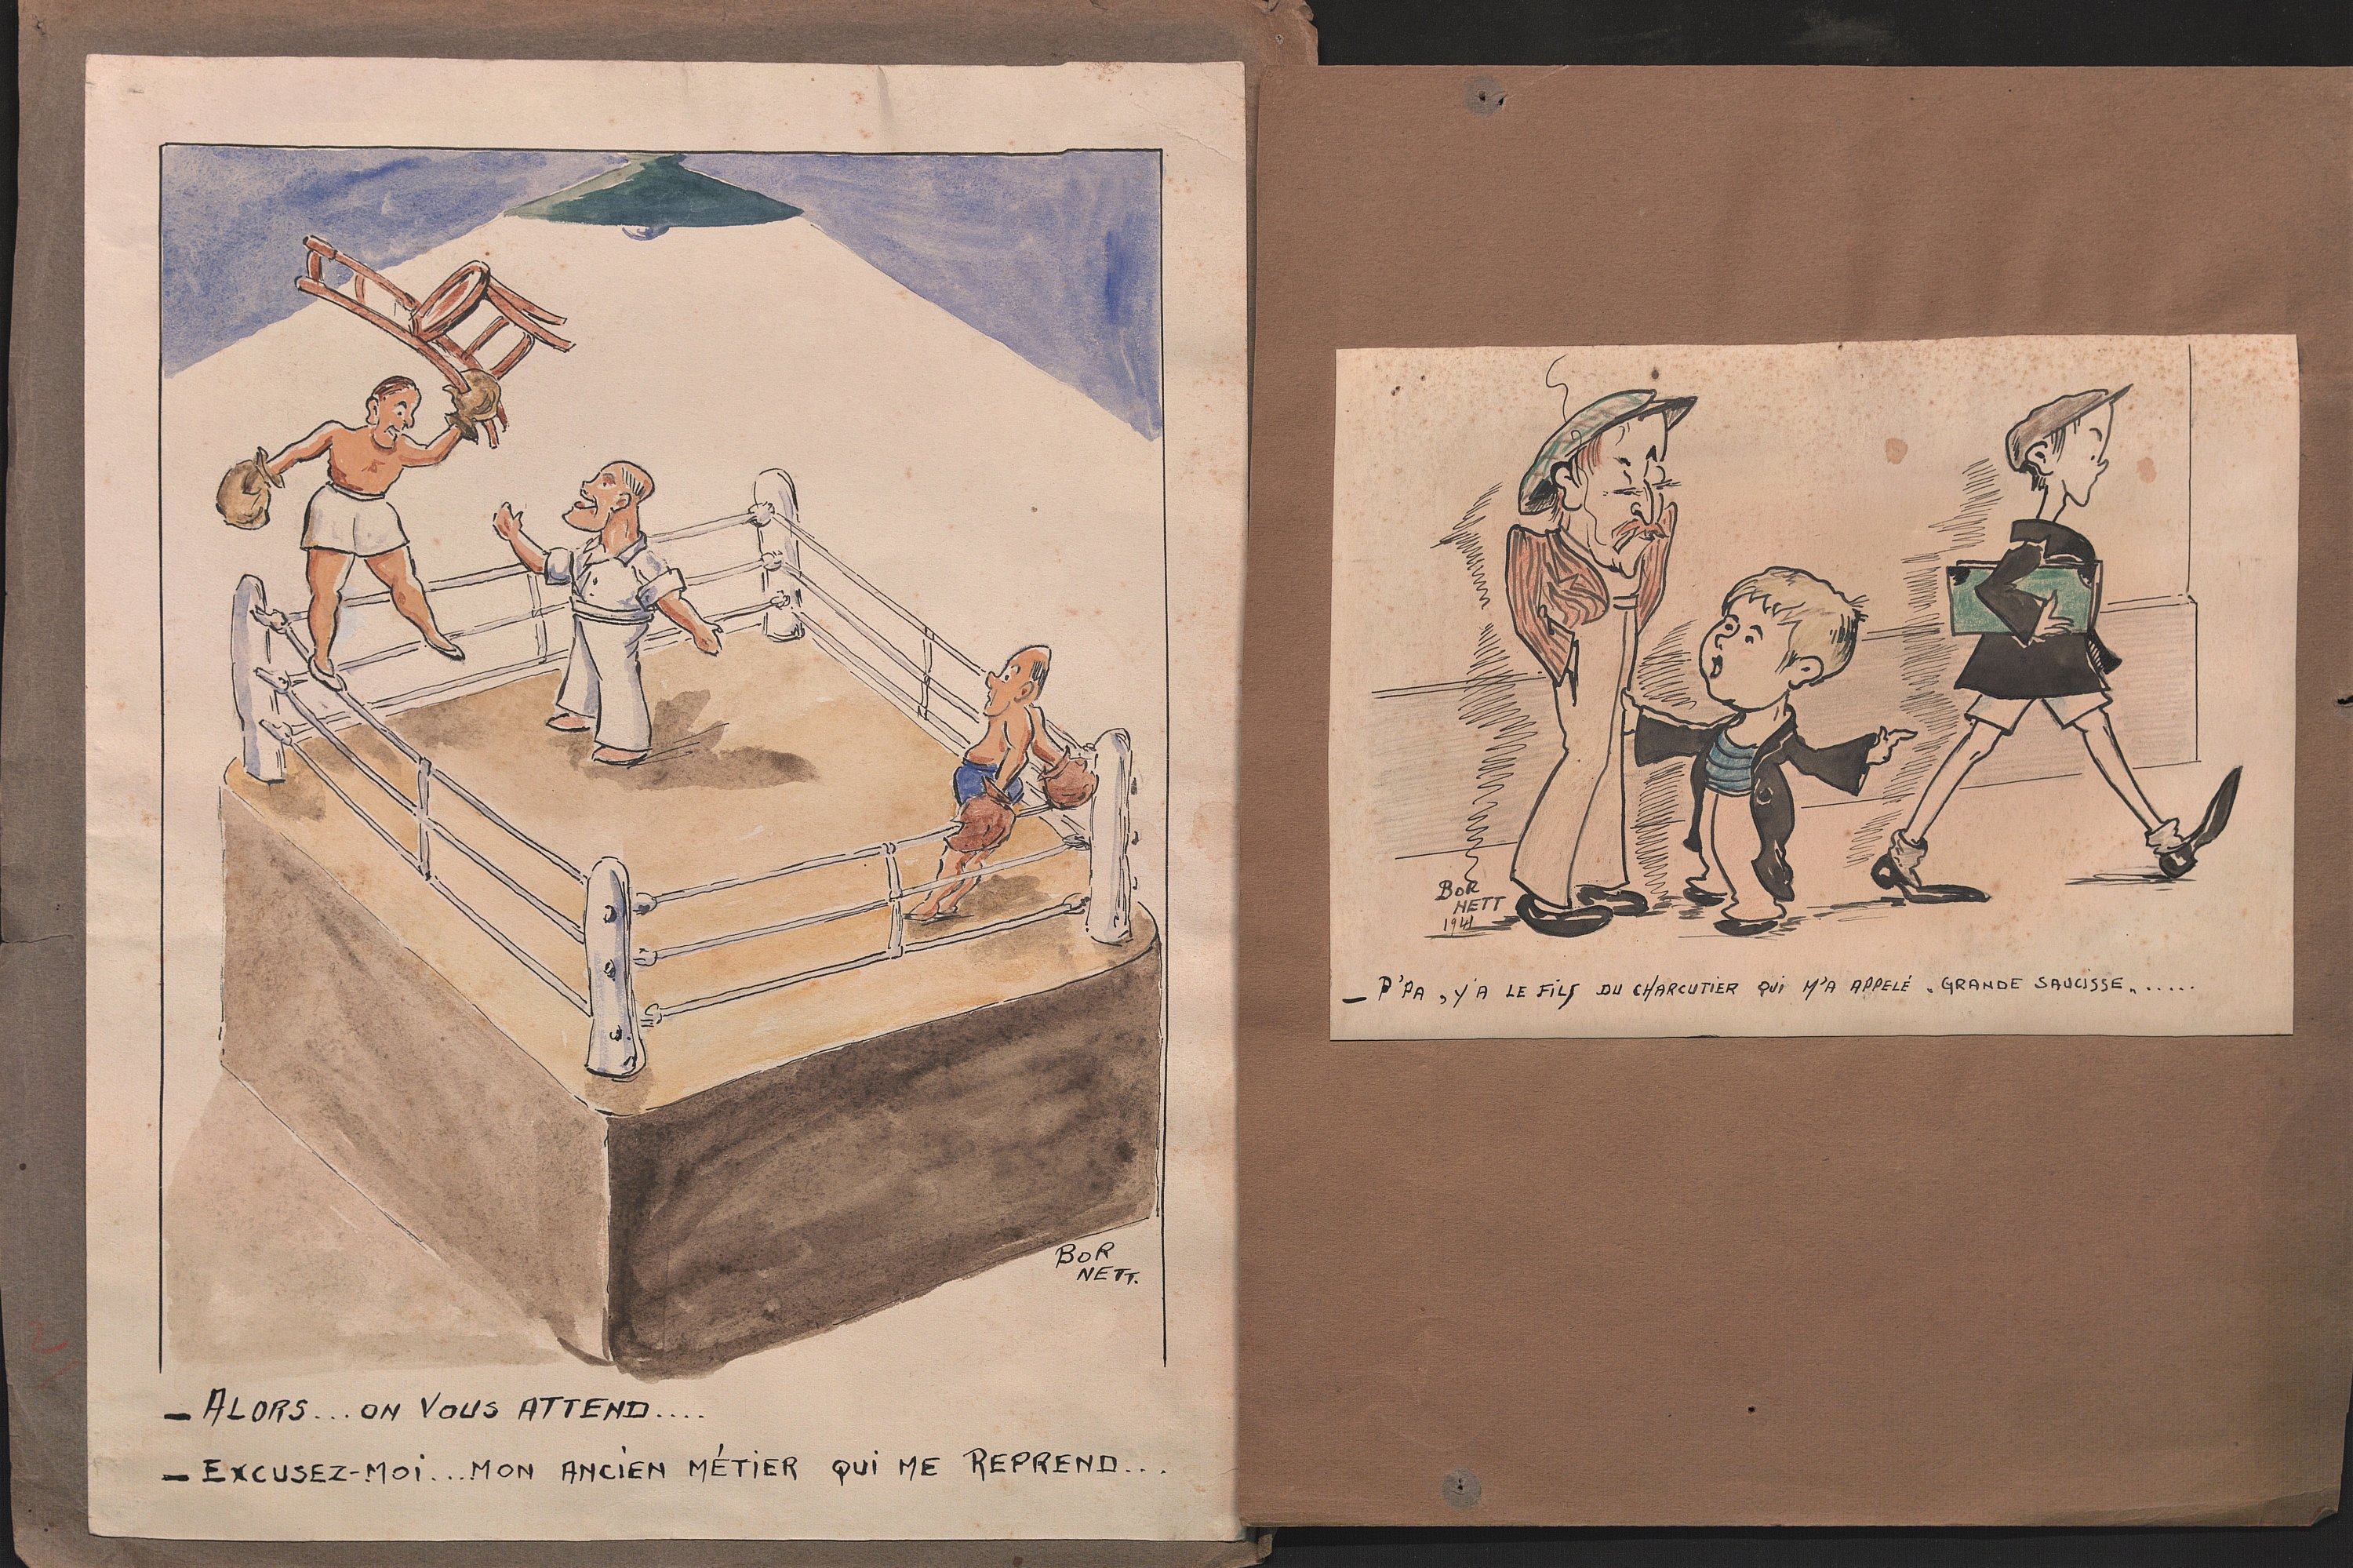 BOR
NETT.
– ALORS...ON VOUS ATTEND....
– EXCUSEZ-MOI...MON ANCIEN MÉTIER QUI ME REPREND...
BOR
NETT
1941
– P'PA, Y'A LE FILS DU CHARCUTIER QUI M'A APPELÉ "GRANDE SAUCISSE"......